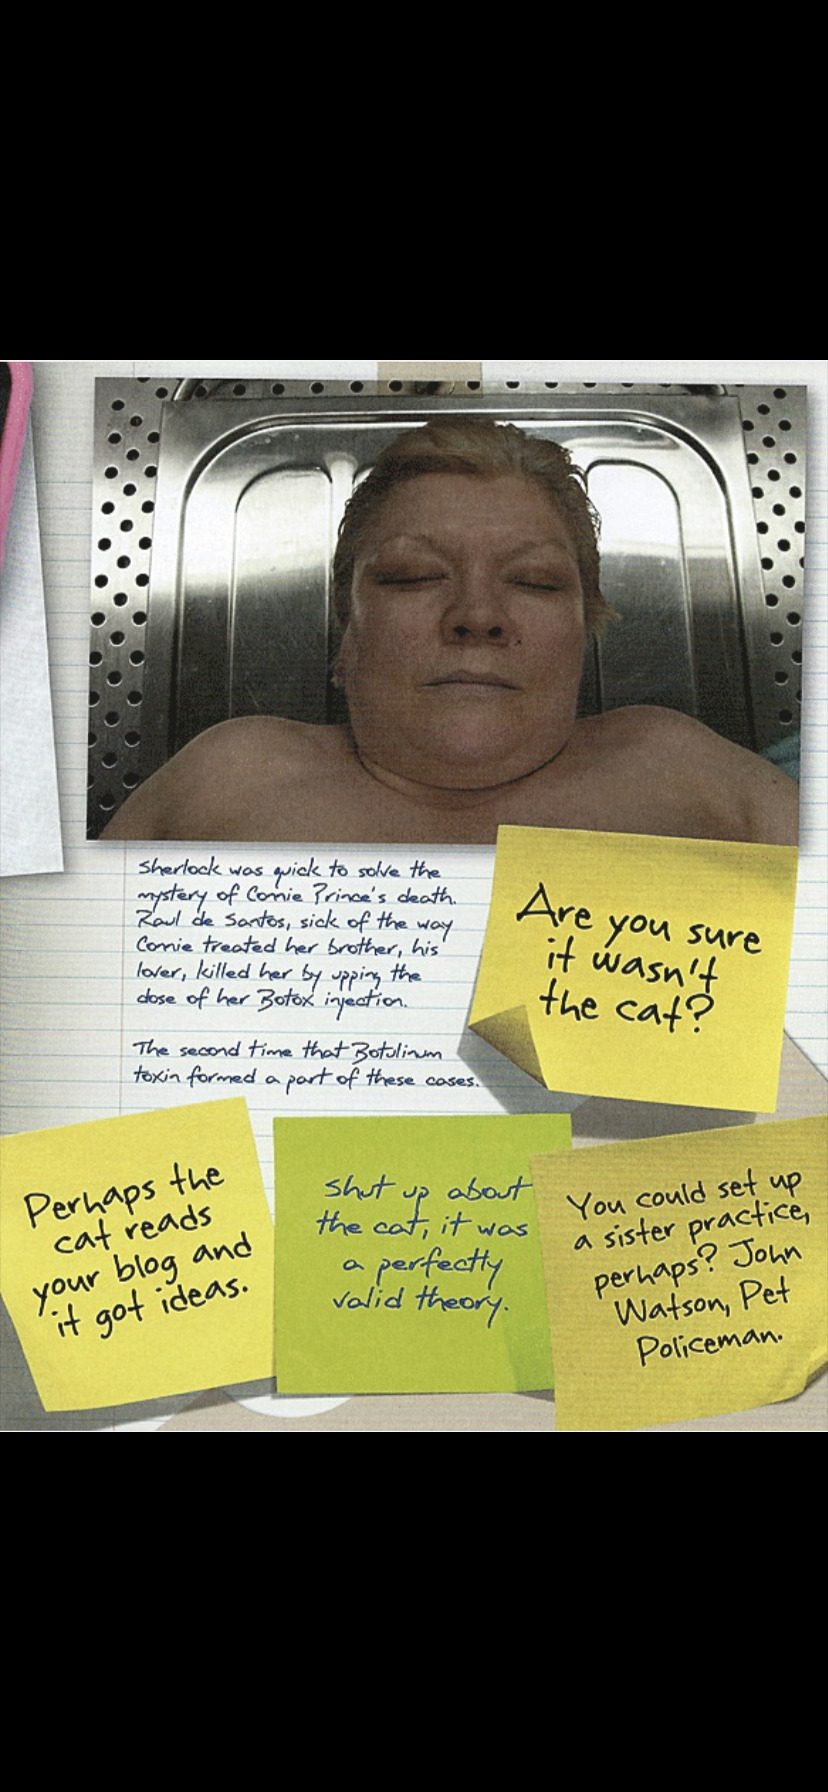 Sherlock was quick to solve the
mystery of Connie Prince's death.
Raul de Santos, sick of the way
Connie treated her brother, his
lover, killed her by upping the
dose of her Botox injection.
The second time that Botulinum
toxin formed a part of these cases.
Are you sure
it wasn't
the cat?
Perhaps the
cat reads
your blog and
it got ideas.
Shut up about
the cat, it was
a perfectly
valid theory.
You could set up
a sister practice,
perhaps? John
Watson, Pet
Policeman.